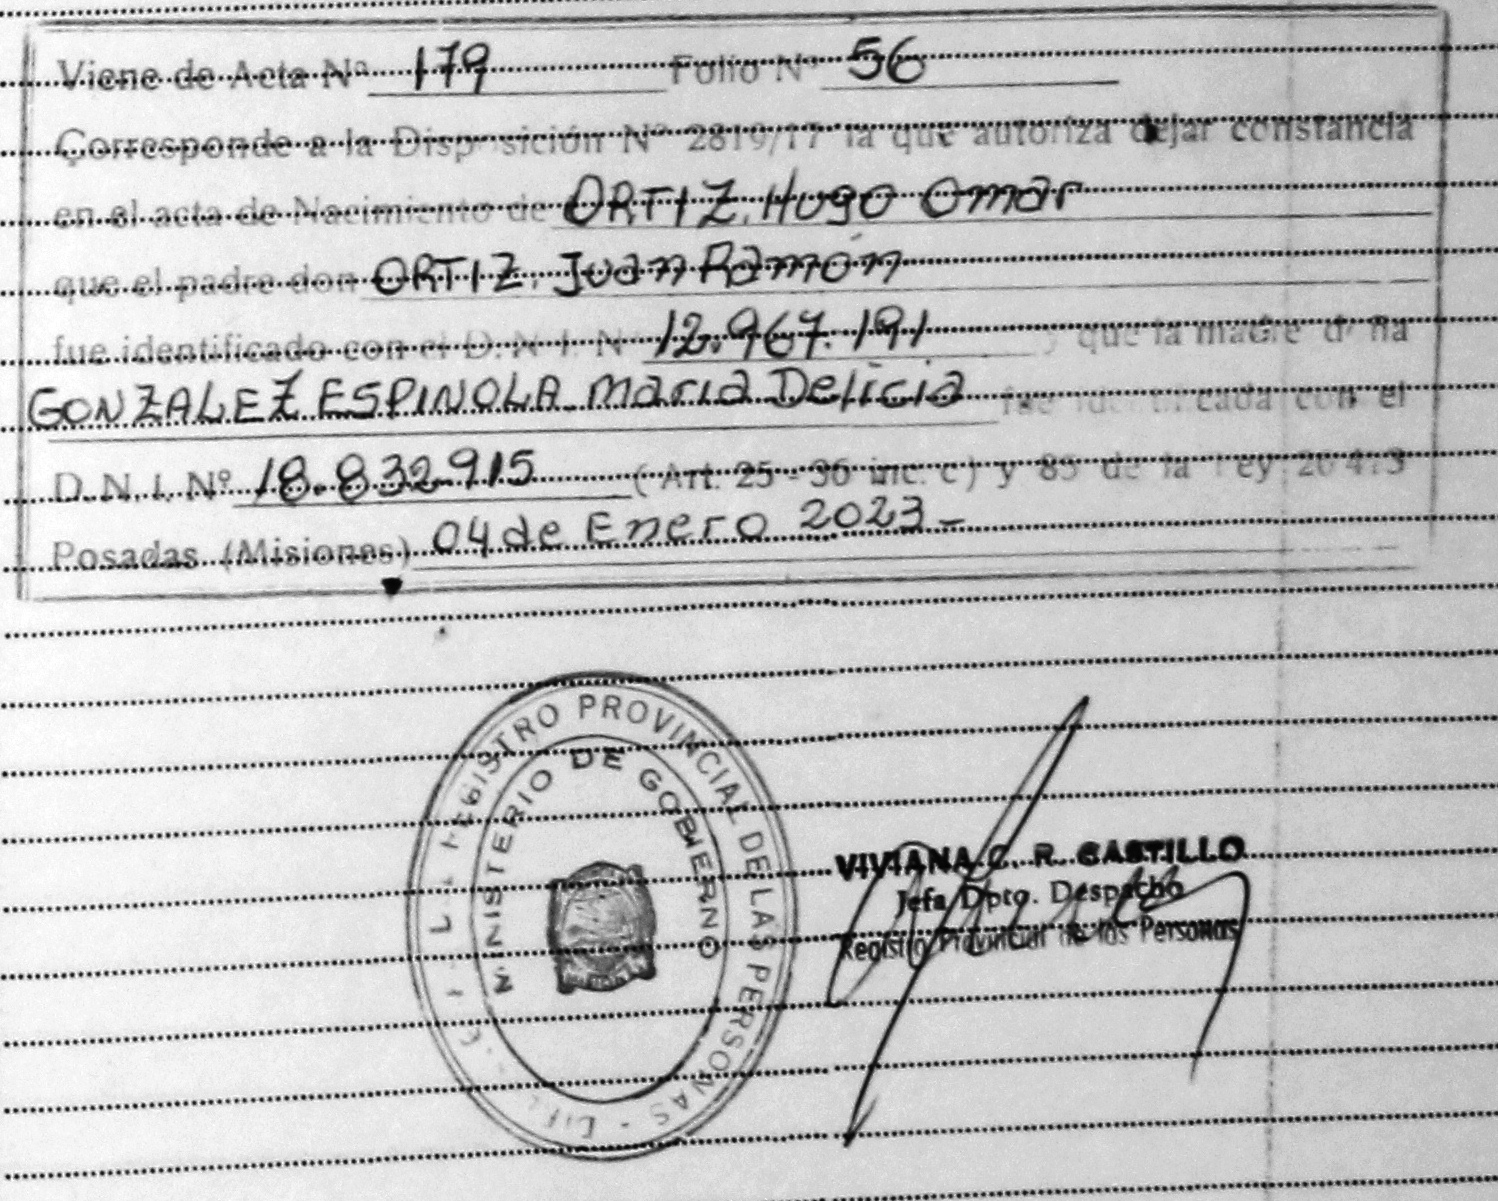 Viene de Acta Nº 179 Folio Nº 56
Corresponde a la Disposición Nº 2819/17 la que autoriza dejar constancia
en el acta de Nacimiento de ORTIZ, Hugo Omar
que el padre don ORTIZ, Juan Ramón
fue identificado con el D.N.I. N 12.967.191 y que la madre d ña
GONZALEZ ESPINOLA Maria Delicia fue identificada con el
D.N.I. Nº 18.832.915 (Art. 25 - 36 inc. c) y 85 de la Ley 26413
Posadas (Misiones) 04 de Enero 2023-
REGISTRO PROVINCIAL DE LAS PERSONAS
MINISTERIO DE GOBIERNO
VIVIANA C. R. CASTILLO
Jefa Dpto. Despacho
Registro Provincial de las Personas